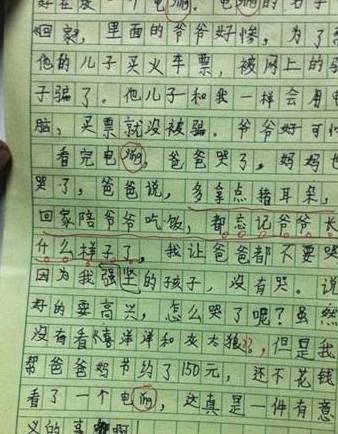 好在放一个电ying。电ying的名字
回家，里面的爷爷好惨，为了
他的儿子买火车票，被网上的骗
子骗了。他儿子和我一样会用电
脑，买票就没被骗。爷爷好可
看完电ying，爸爸哭了，妈妈也
哭了，爸爸说，多拿点猪耳朵，
回家陪爷爷吃饭，都忘记爷爷长
什么样子了。我让爸爸都不要哭
因为我强坚的孩子，没有哭。说
好的要高兴，怎么哭了呢？虽然
没有看喜洋洋和灰太狼，但是我
帮爸爸妈节约了150元，还不花钱
看了一个电ying，这真是一件有意
义的事啊！